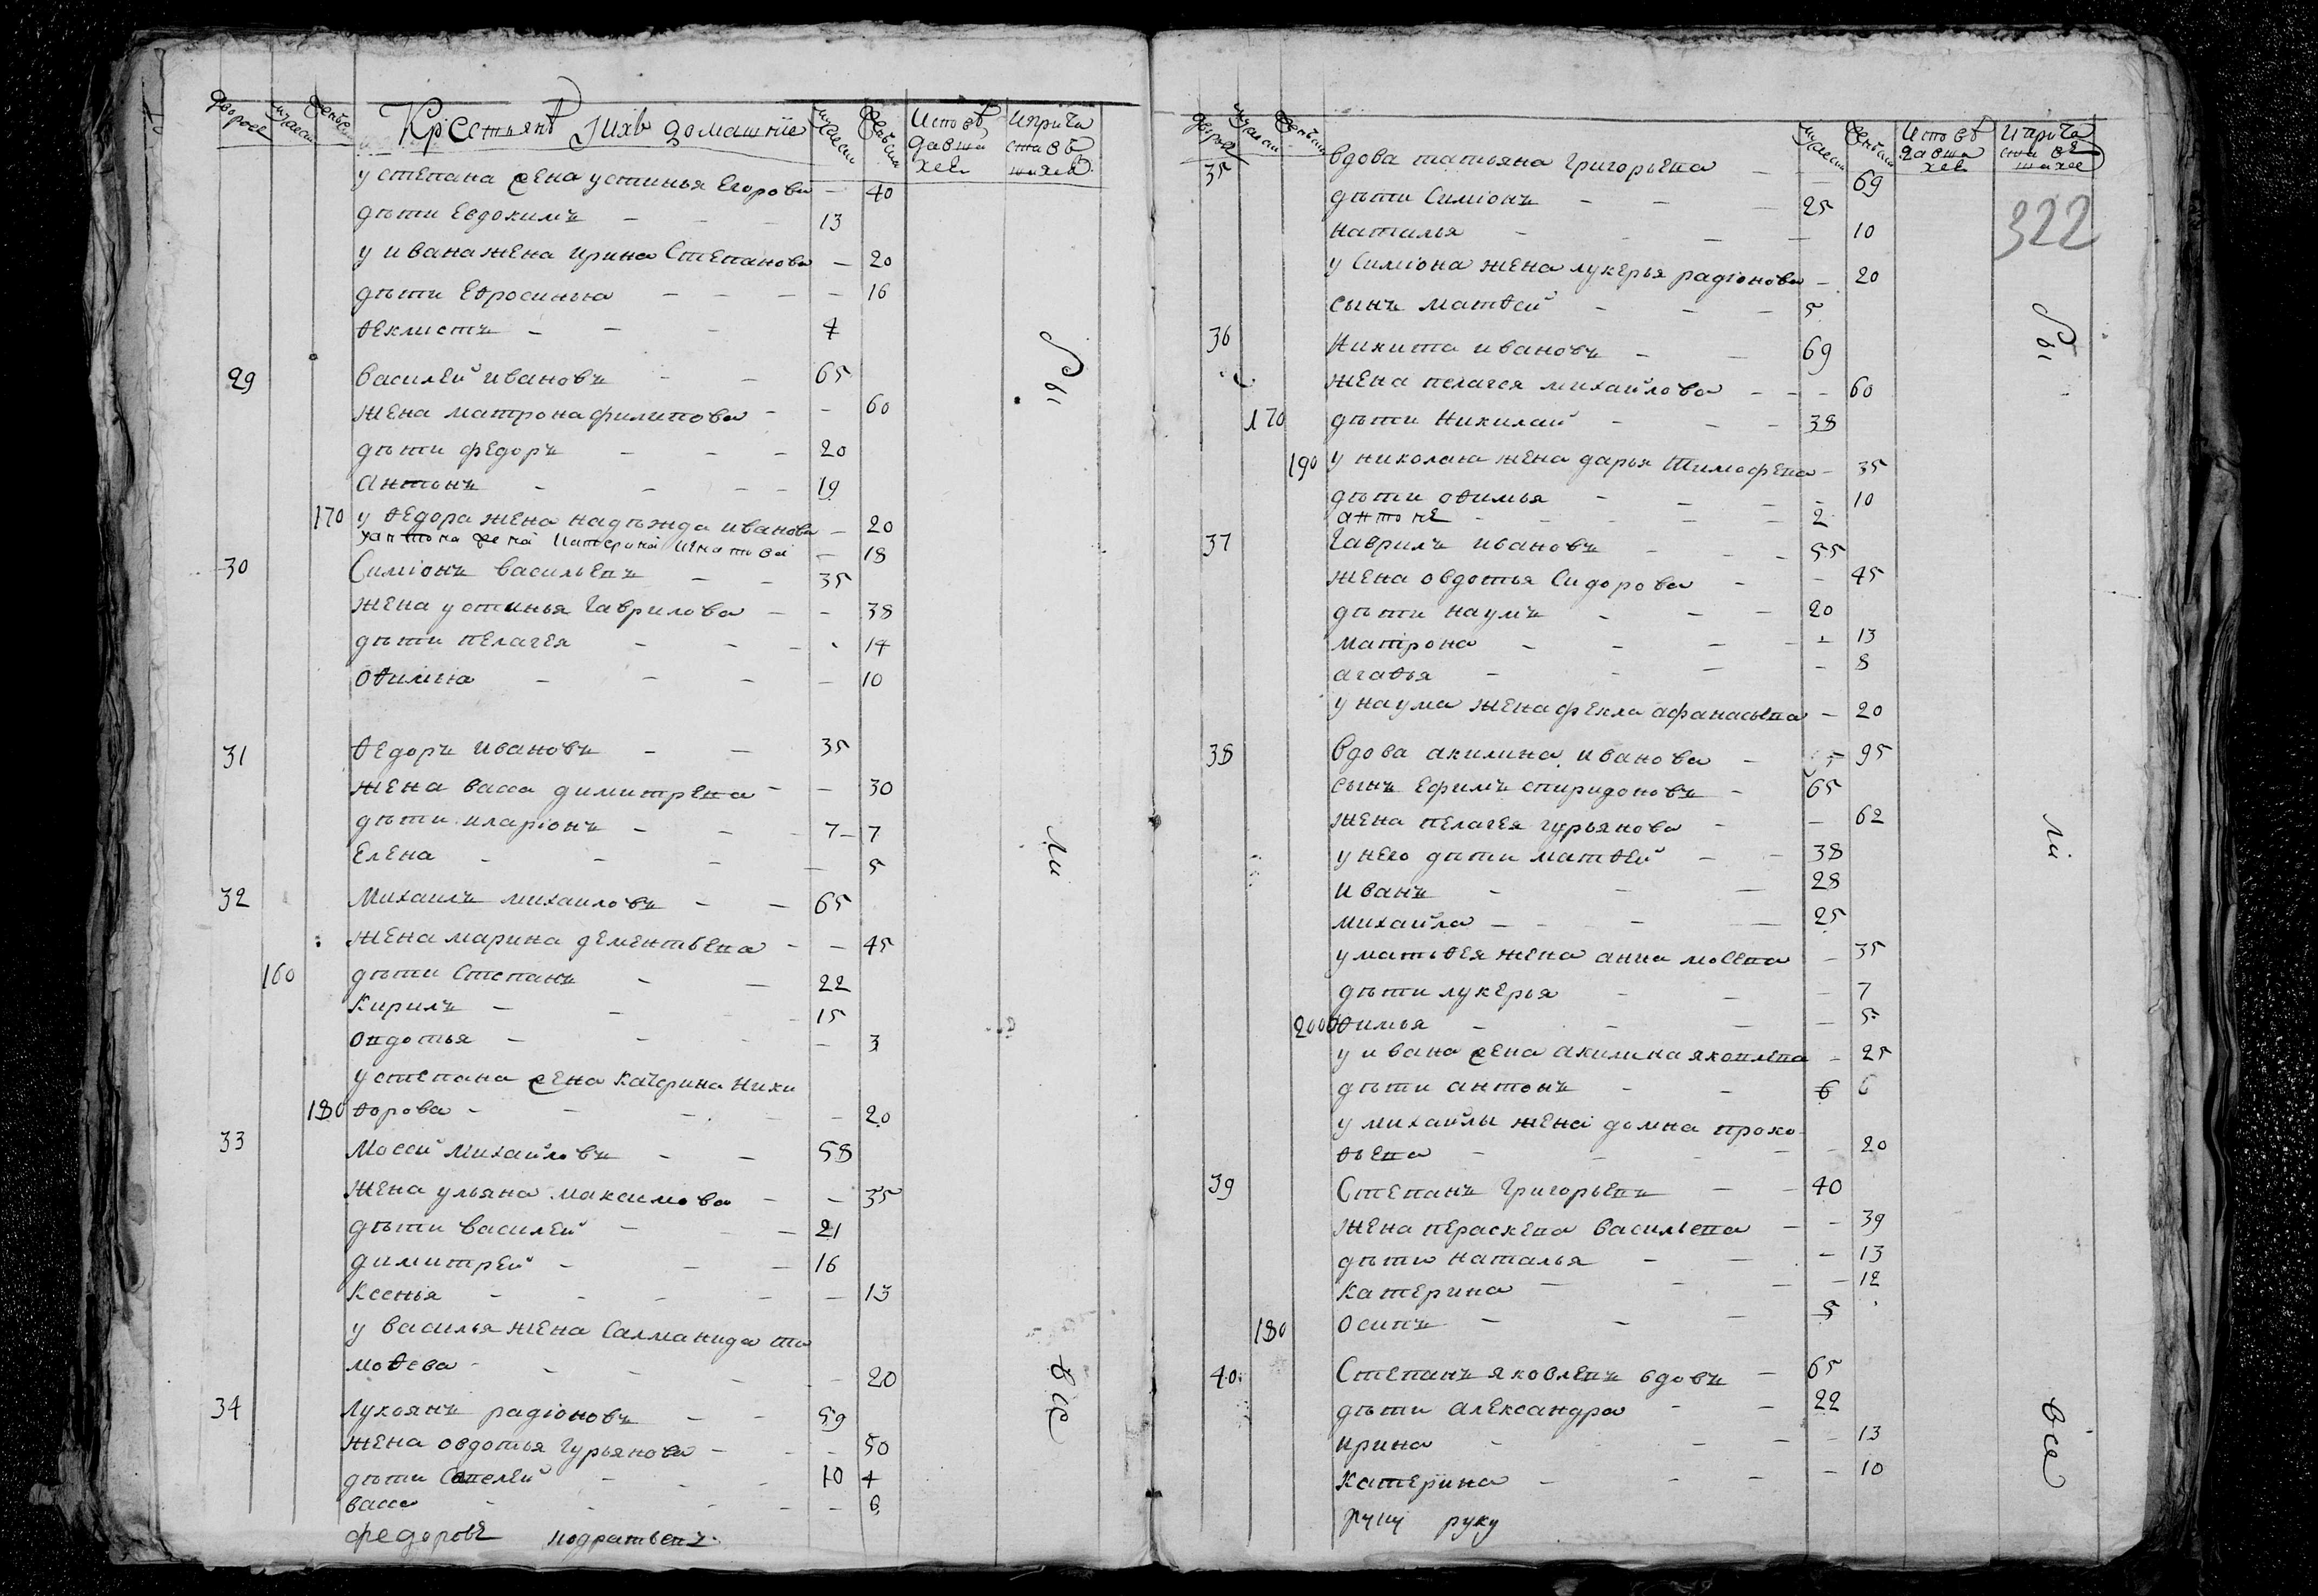 дворов мужеск женьск Крестьянъ Jихъ домашнiе мужеск женьск Исповѣ давши хсв Iприча ставъ шихсв
у степана жена устинья Егорова — 40
дѣти Евдокимъ — 13
у ивана жена ирина Степанова — 20
дѣти Еѳросинья — 16
ѳеклистъ — 4
29 василей ивановъ — 65
жена матрона филипова — 60
дѣти федоръ — 20
антонъ — 19
170 у ѳедора жена надѣжда иванова — 20
у антона жена катерина игнатова — 18
30 Симiонъ васильевъ — 35
жена устинья гаврилова — 38
дѣти пелагея — 14
оѳимiя — 10
31 ѳедоръ ивановъ — 35
жена васса димитрева — 30
дѣти иларiонъ — 7 — 7
Елена — 5
32 михаилъ михаиловъ — 65
жена марина дементьева — 45
160 дѣти Степанъ — 22
кирилъ — 15
овдотья — 3
у степана жена катерина ники
180 ѳорова — 20
33 мосей михайловъ — 58
жена ульяна максимова — 35
дѣти василей — 21
димитрей — 16
ксенья — 13
у василья жена Салманида ти
моѳева — 20
34 лукоянъ радiоновъ — 59
жена овдотья гурьянова — 50
дѣти Савелей — 10 4
васса — 6
федоровъ
дворов мужеск женьск мужеск женьск Исповѣ давши хсв Iприча ставъ шихсв
35 вдова татьяна григорьева — 69
322
дѣти Симiонъ — 25
наталья — 10
у Симiона жена лукерья радiонова — 20
сынъ матѳей — 5
36 никита ивановъ — 69
жена пелагея михайлова — 60
170 дѣти николай — 38
190 у николая жена дарья тимофева — 35
дѣти оѳимья — 10
антонъ — 2
37 гаврилъ ивановъ — 55
жена овдотья Сидорова — 45
дѣти наумъ — 20
матрона — 13
агаѳья — 8
у наума жена фекла афанасьева — 20
38 вдова акилина иванова — 95
сынъ Ефимъ спиридоновъ — 65
жена пелагея гурьянова — 62
у него дѣти матѳей — 38
иванъ — 28
михайла — 25
у матьѳея жена анна мосева — 35
дѣти лукерья — 7
200 оѳимья — 5
у ивана жена акилина яковлева — 25
дѣти антонъ — 6 6
у михайлы жена домна проко
ѳьева — 20
39 Степанъ григорьевъ — 40
жена пераскева васильева — 39
дѣти наталья — 13
катерина — 12
180 осипъ — 5
40 Степанъ яковлевъ вдовъ — 65
дѣти александра — 22
ирина — 13
катерина — 10
руку
бы
ли
все
бы
ли
все